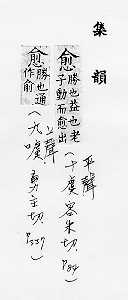 集韻
愈 勝也益也老
子動而愈出
平聲
(十虞 容朱切 P.84)
愈 勝也通
作俞
上聲
(九噳 勇主切